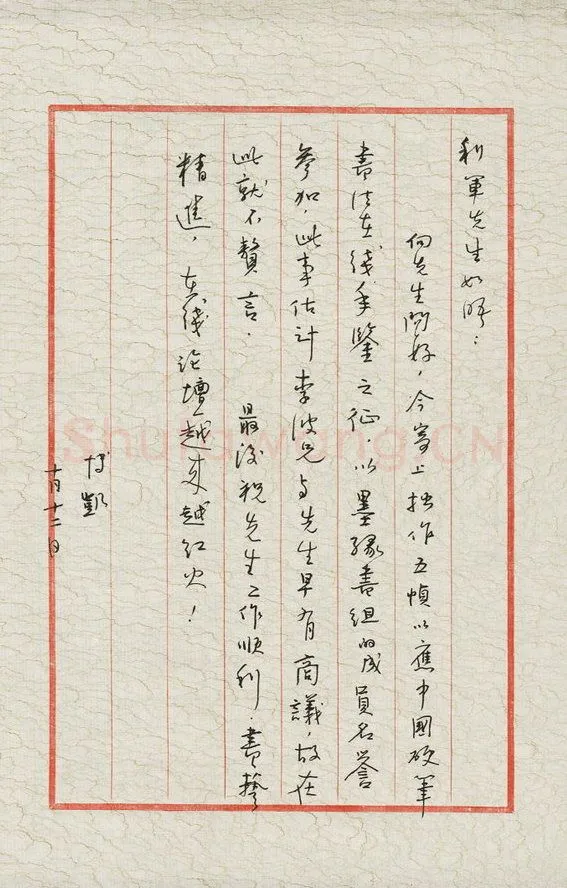 利軍先生如晤：
向先生問好，今寄上拙作五幀以應中國硬筆
書法在线手鑒之征，以墨缘書组的成員名誉
參加，此事估计李波兄与先生早有商議，故在
此就不贅言．最後祝先生工作顺利．書藝
精進，在线论壇越来越红火！
付凱
十月十二日
Shufawang.CN